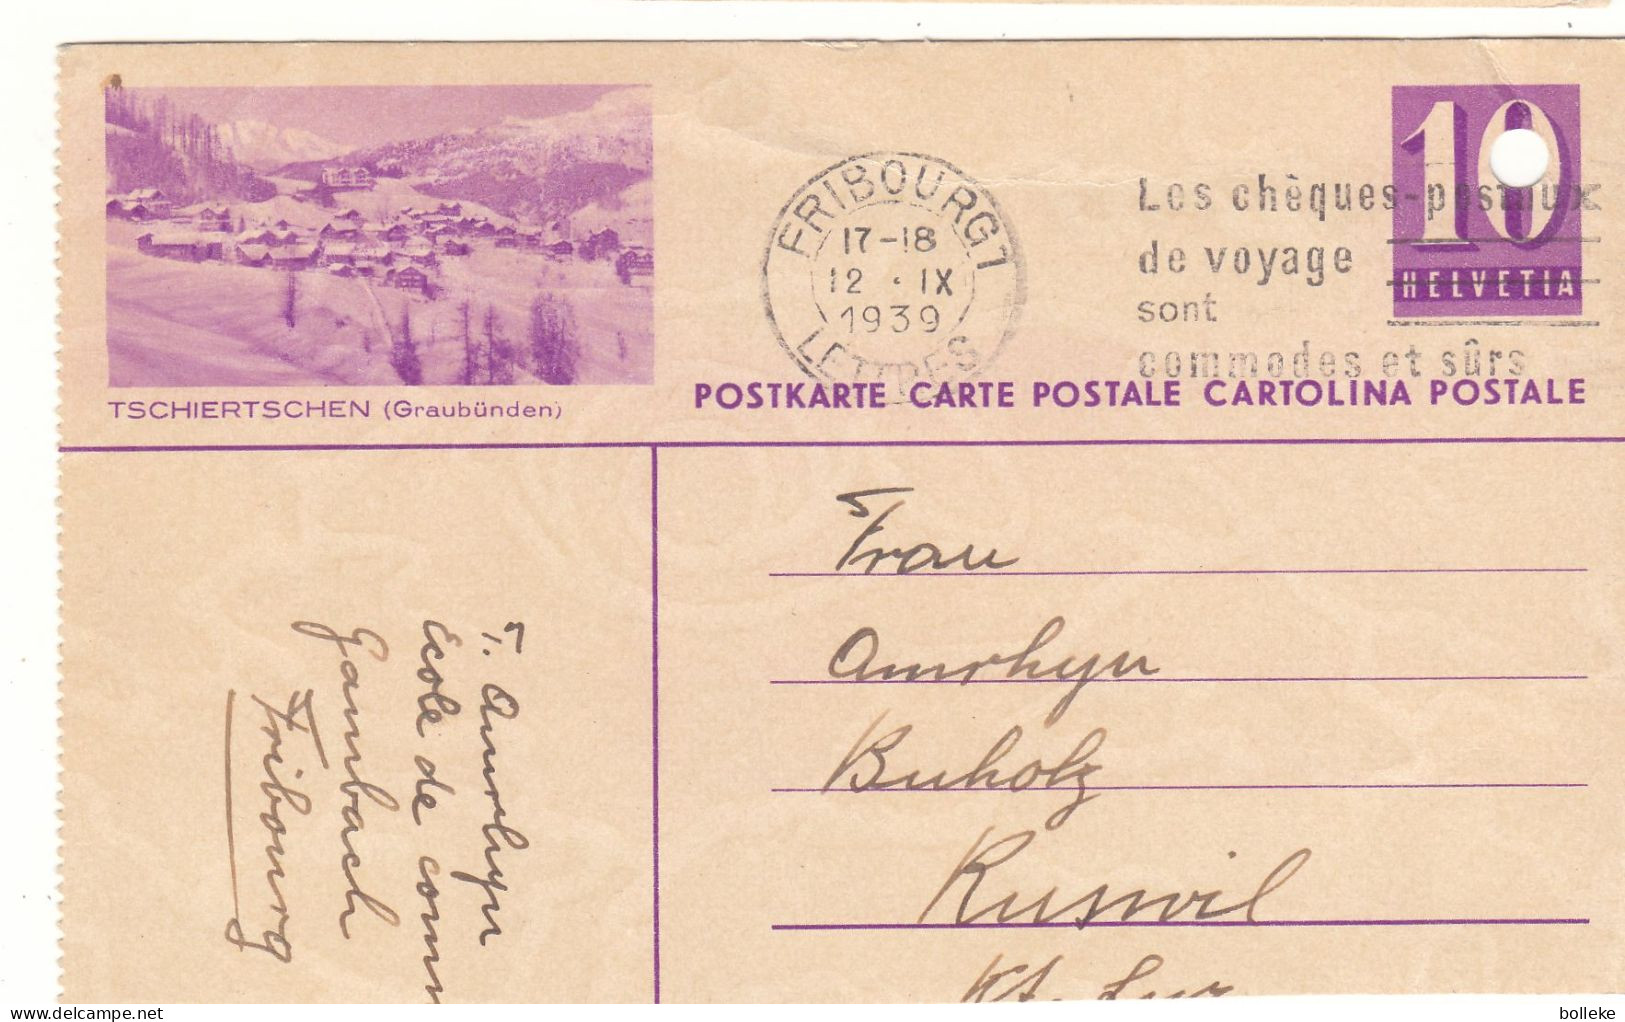 TSCHIERTSCHEN (Graubünden)
FRIBOURG 1
17-18
12 · IX
1939
LETTRES
Les chèques-postaux
de voyage
sont
commodes et sûrs
10
HELVETIA
POSTKARTE CARTE POSTALE CARTOLINA POSTALE
Frau
Amrhyn
Buholz
Ruswil
Kt. Luz
T. Amrhyn
Ecole de comm
Gambach
Fribourg
bolleke